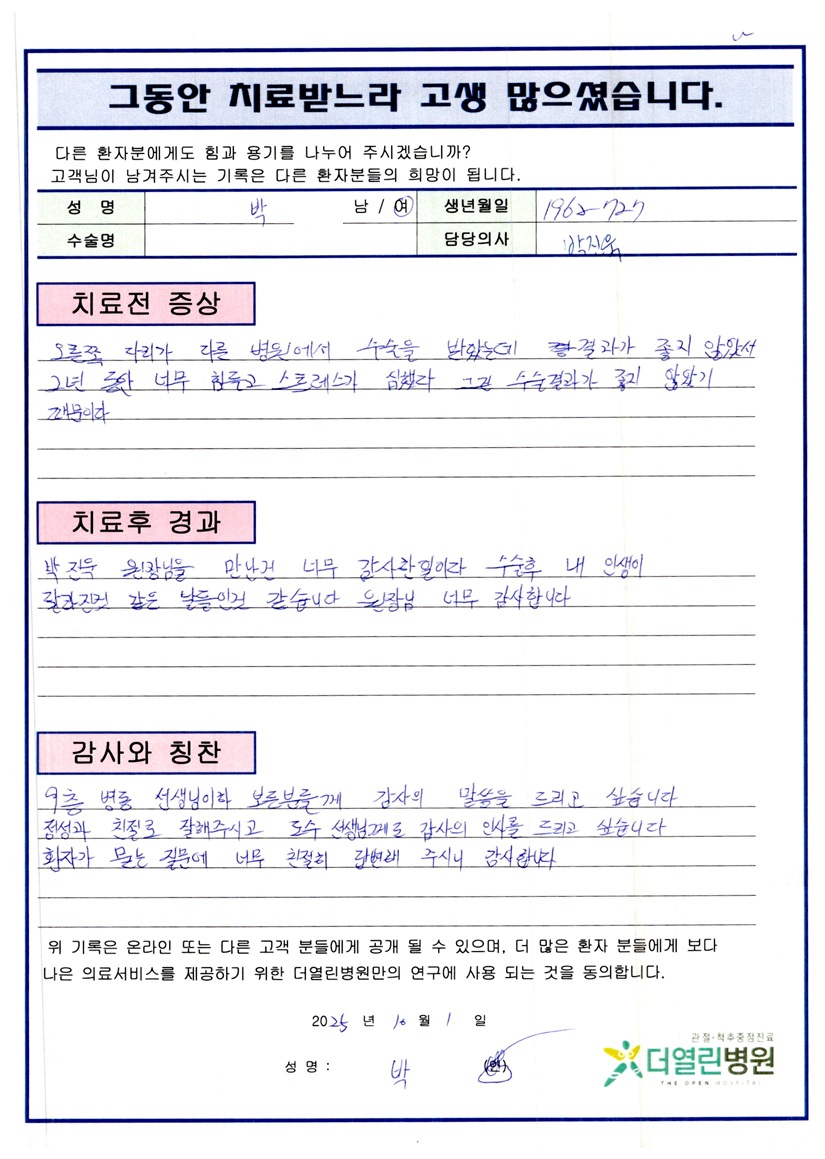 그동안 치료받느라 고생 많으셨습니다.
다른 환자분에게도 힘과 용기를 나누어 주시겠습니까?
고객님이 남겨주시는 기록은 다른 환자분들의 희망이 됩니다.
성 명 박 남 / 여 생년월일 1962-727
수술명 담당의사 박진욱
치료전 증상
오른쪽 다리가 다른 병원에서 수술을 받았는데 결과가 좋지 않았서
2년 동안 너무 힘들고 스트레스가 심했다 수술결과가 좋지 않았기
때문이다
치료후 경과
박진욱 원장님을 만난건 너무 감사한일이라 수술후 내 인생이
달라진건 같은 날들인건 같습니다 원장님 너무 감사합니다
감사와 칭찬
9층 병동 선생님이하 모른분들게 감사의 말씀을 드리고 싶습니다
정성과 친절로 잘해주시고 도수 선생님께로 감사의 인사를 드리고 싶습니다
환자가 묻는 질문에 너무 친절히 답변해 주시니 감사합니다
위 기록은 온라인 또는 다른 고객 분들에게 공개 될 수 있으며, 더 많은 환자 분들에게 보다
나은 의료서비스를 제공하기 위한 더열린병원만의 연구에 사용 되는 것을 동의합니다.
2025 년 10 월 1 일
성 명 : 박 (인)
관절·척추중점진료
더열린병원
THE OPEN HOSPITAL